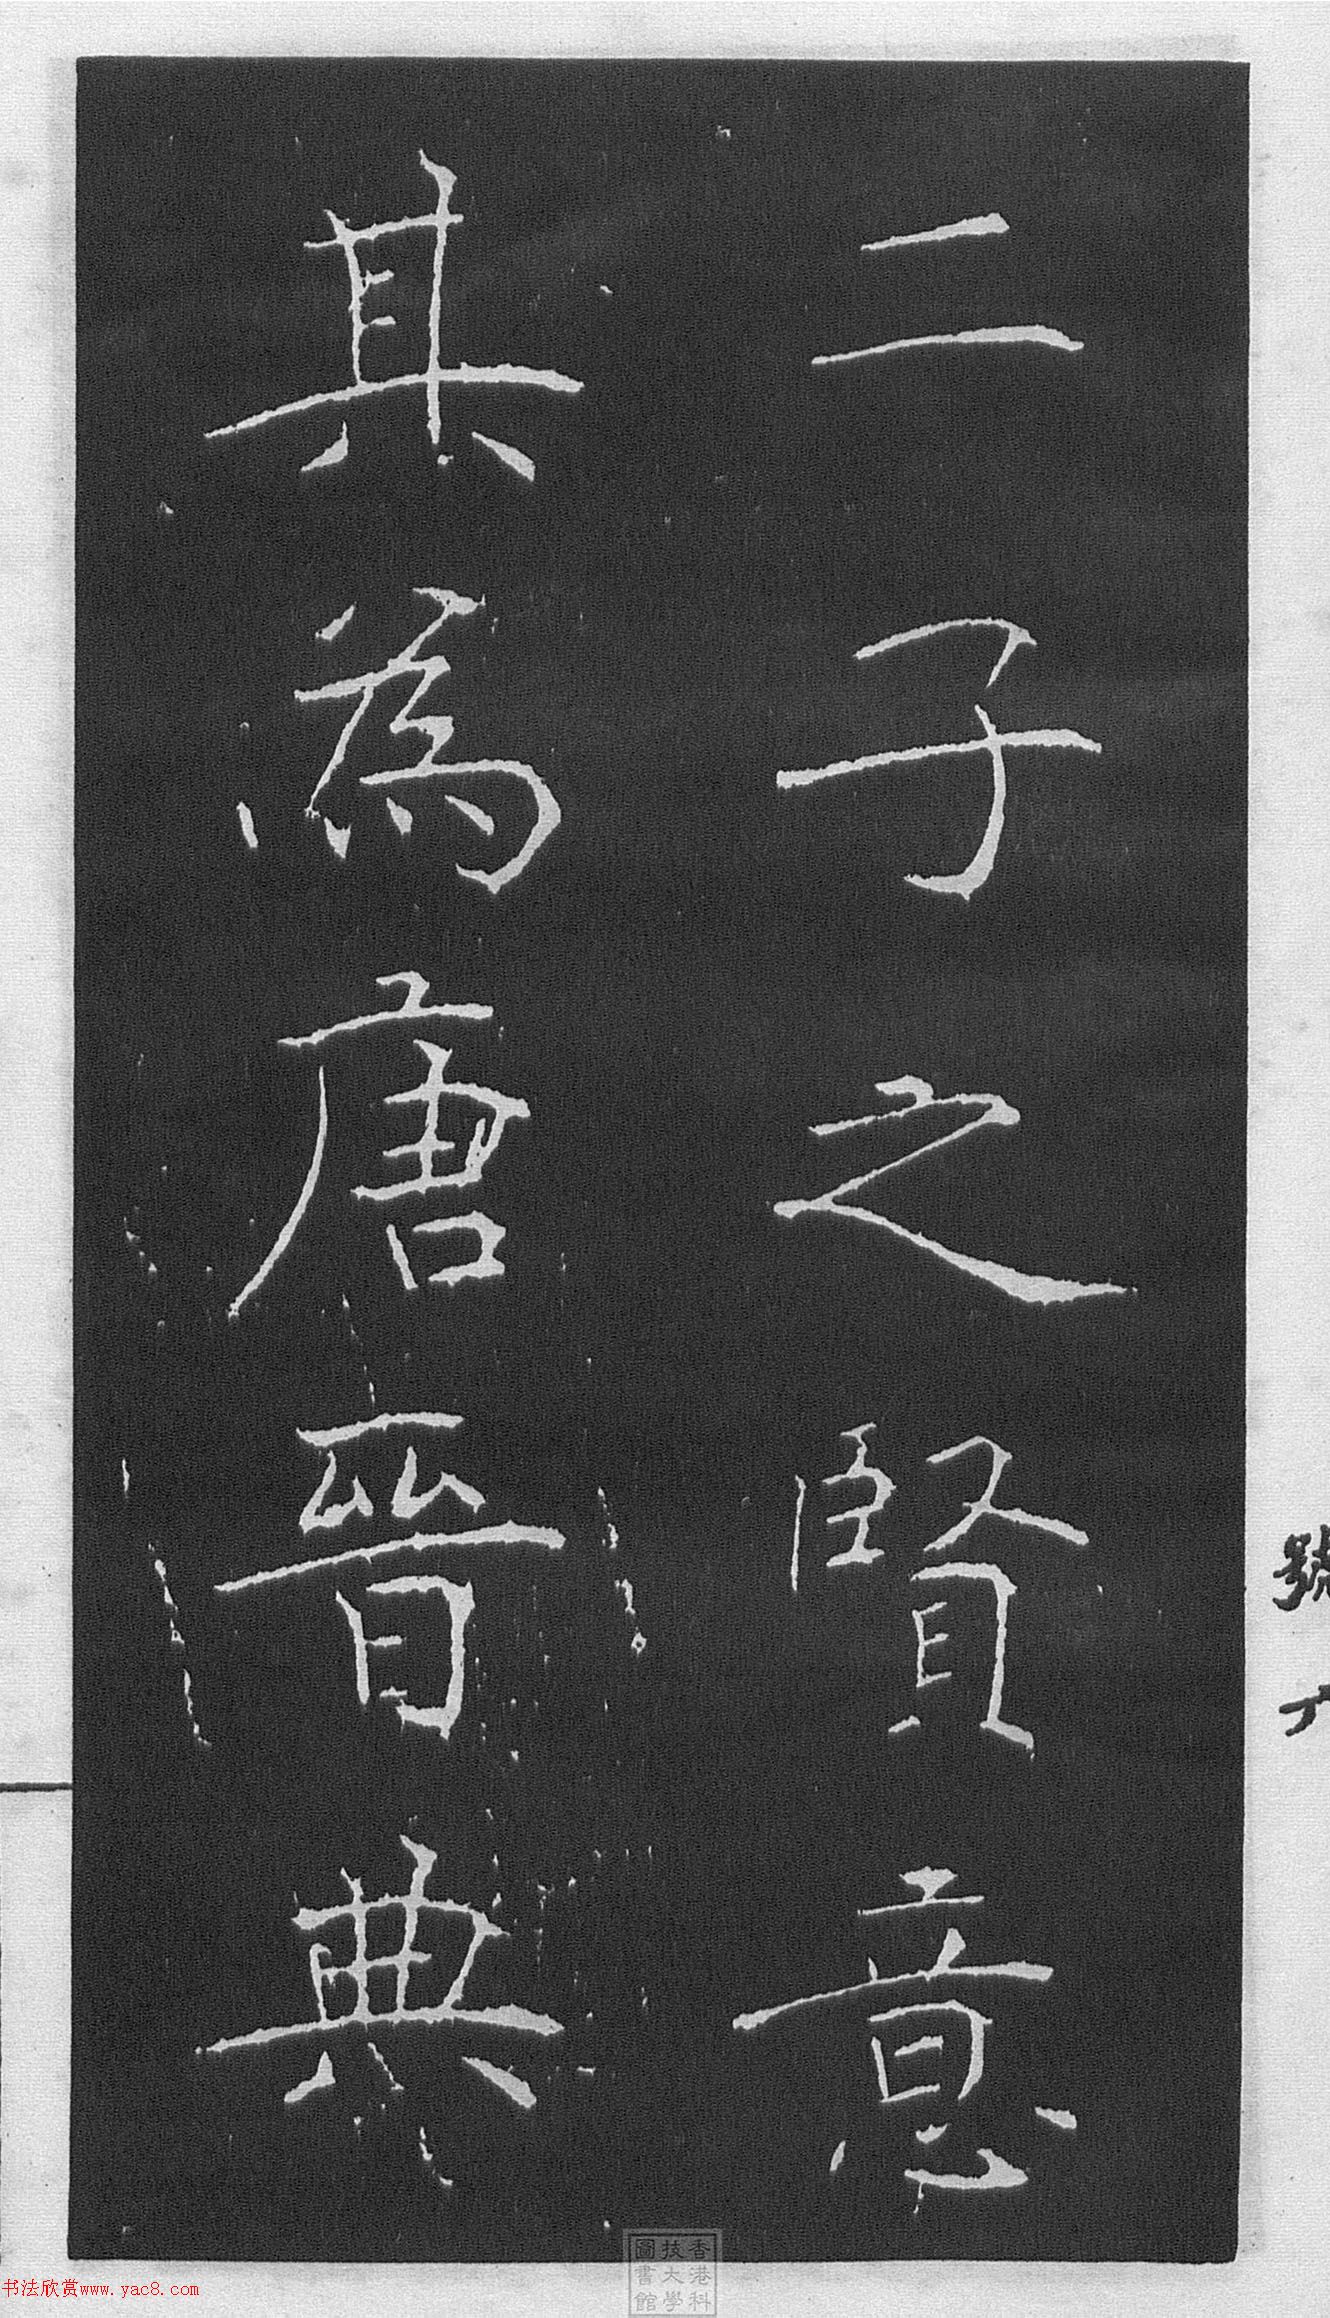 二子之賢意
其為唐晉典
號
書法欣赏www.yac8.com
香港科
技大學
圖書館